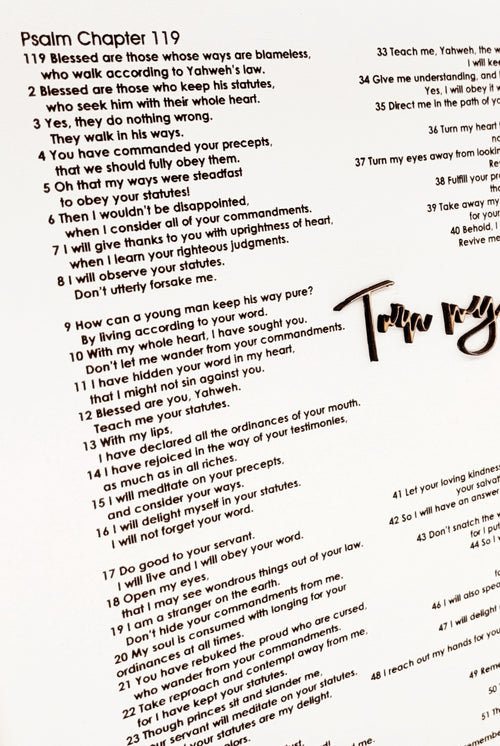 Psalm Chapter 119
119 Blessed are those whose ways are blameless,
who walk according to Yahweh's law.
2 Blessed are those who keep his statutes,
who seek him with their whole heart.
3 Yes, they do nothing wrong.
They walk in his ways.
4 You have commanded your precepts,
that we should fully obey them.
5 Oh that my ways were steadfast
to obey your statutes!
6 Then I wouldn't be disappointed,
when I consider all of your commandments.
7 I will give thanks to you with uprightness of heart,
when I learn your righteous judgments.
8 I will observe your statutes.
Don't utterly forsake me.
9 How can a young man keep his way pure?
By living according to your word.
10 With my whole heart, I have sought you.
Don't let me wander from your commandments.
11 I have hidden your word in my heart,
that I might not sin against you.
12 Blessed are you, Yahweh.
Teach me your statutes.
13 With my lips,
I have declared all the ordinances of your mouth.
14 I have rejoiced in the way of your testimonies,
as much as in all riches.
15 I will meditate on your precepts,
and consider your ways.
16 I will delight myself in your statutes.
I will not forget your word.
17 Do good to your servant.
I will live and I will obey your word.
18 Open my eyes,
that I may see wondrous things out of your law.
19 I am a stranger on the earth.
Don't hide your commandments from me.
20 My soul is consumed with longing for your
ordinances at all times.
21 You have rebuked the proud who are cursed,
who wander from your commandments.
22 Take reproach and contempt away from me,
for I have kept your statutes.
23 Though princes sit and slander me,
your servant will meditate on your statutes.
your statutes are my delight,
33 Teach me, Yahweh, the
I will
34 Give me understanding, and
Yes, I will obey it
35 Direct me in the path of
36 Turn my heart
37 Turn my eyes away from
38 Fulfill your
39 Take away my
for your
40 Behold, I
Revive me
Turn my
41 Let your loving
your
42 So I will have an answer
43 Don't snatch the
for I
44 So I
46 I will also
47 I will delight
48 I reach out my hands for
49
50
51